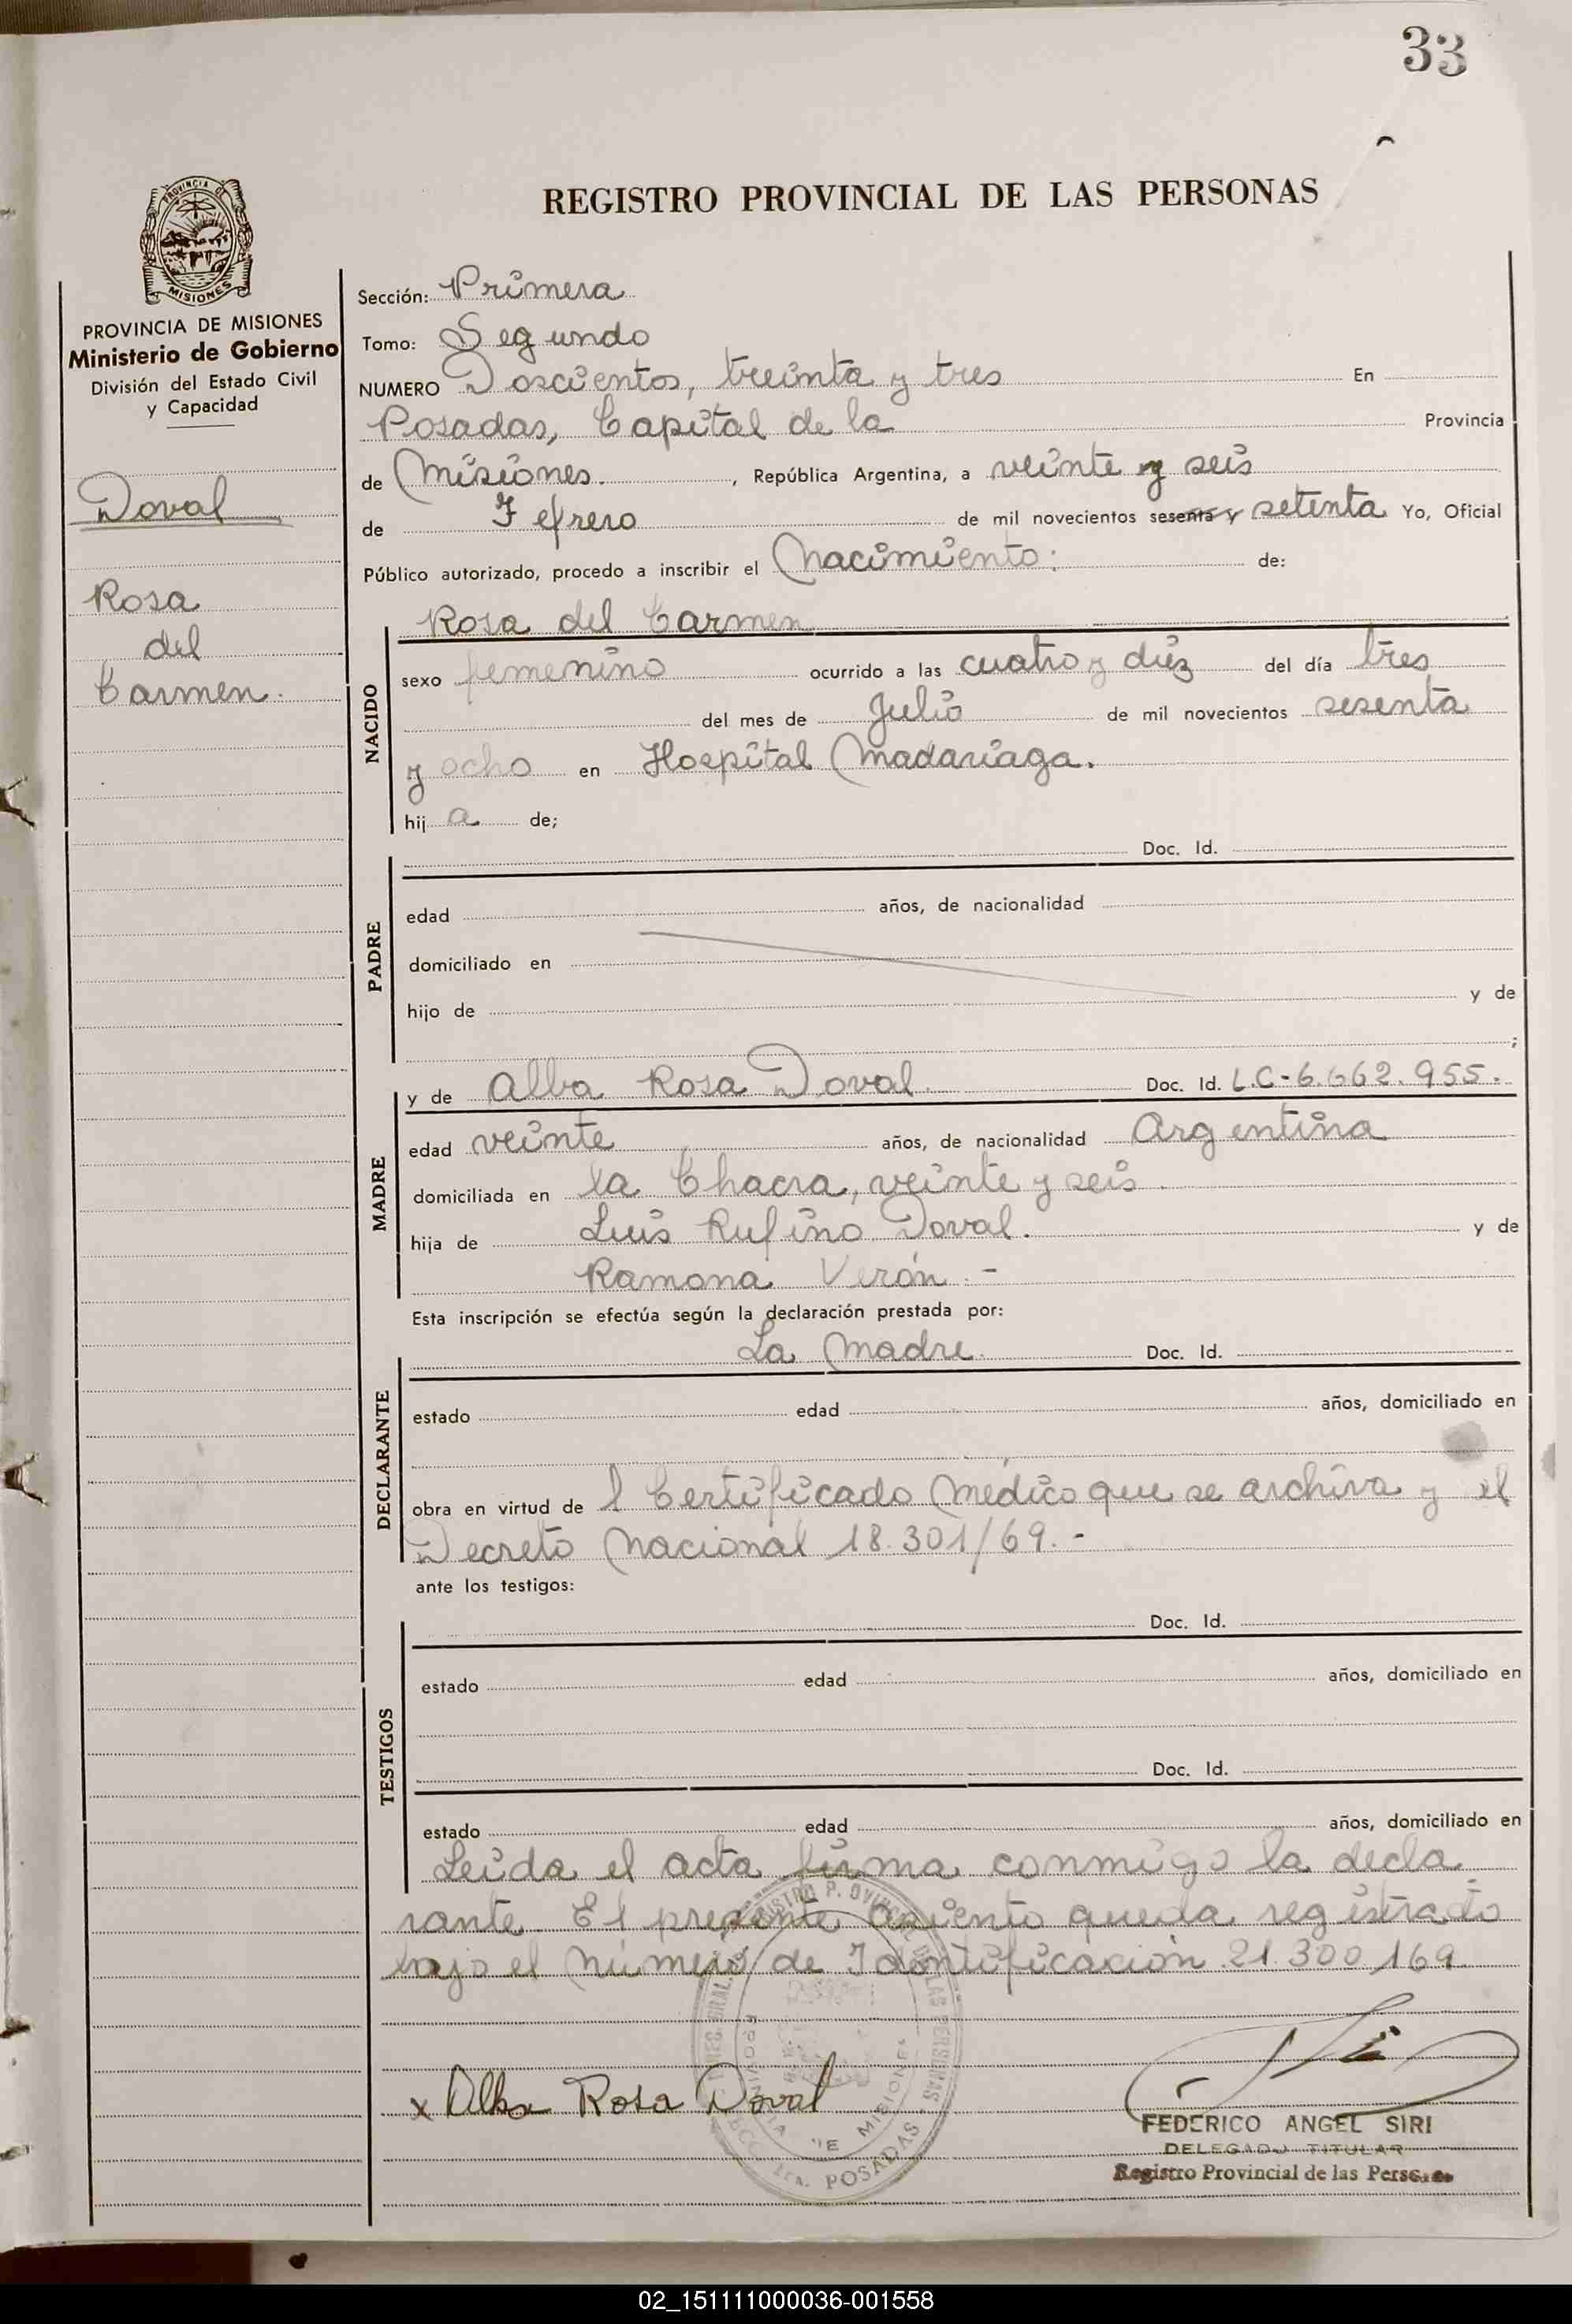 33
REGISTRO PROVINCIAL DE LAS PERSONAS
PROVINCIA DE MISIONES
Ministerio de Gobierno
División del Estado Civil
y Capacidad
Doval
Rosa
del
Carmen.
Sección: Primera
Tomo: Segundo
NUMERO Doscientos, treinta y tres En
Posadas, Capital de la Provincia
de Misiones. , República Argentina, a veinte y seis
de Febrero de mil novecientos sesenta y setenta Yo, Oficial
Público autorizado, procedo a inscribir el Nacimiento: de:
NACIDO
Rosa del Carmen
sexo femenino ocurrido a las cuatro y diez del día tres
del mes de Julio de mil novecientos sesenta
y ocho en Hospital Madariaga.
hij a de;
PADRE
Doc. Id.
edad años, de nacionalidad
domiciliado en
hijo de y de
;
MADRE
y de Alba Rosa Doval. Doc. Id. L.C-6.662.955.
edad veinte años, de nacionalidad Argentina
domiciliada en la Chacra, veinte y seis.
hija de Luis Rufino Doval. y de
Ramona Verón.-
Esta inscripción se efectúa según la declaración prestada por:
DECLARANTE
La Madre. Doc. Id.
estado edad años, domiciliado en
obra en virtud de l Certificado Médico que se archiva y el
Decreto Nacional 18.301/69.-
ante los testigos:
TESTIGOS
Doc. Id.
estado edad años, domiciliado en
Doc. Id.
estado edad años, domiciliado en
Leida el acta firma conmigo la decla
rante. El presente asiento queda registrado
bajo el número de Identificación 21.300.169.
x Alba Rosa Doval
POSADAS
MISIONES
FEDERICO ANGEL SIRI
DELEGADO TITULAR
Registro Provincial de las Personas
02_151111000036-001558